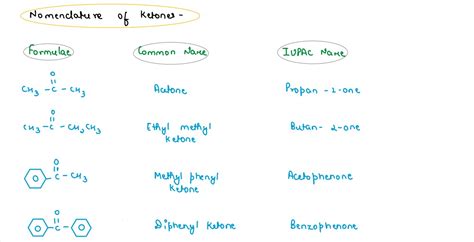 Nomenclature of Ketones -
Formulae Common Name IUPAC Name
O
CH3 - C - CH3 Acetone Propan - 2-one
O
CH3 - C - CH2CH3 Ethyl methyl ketone Butan- 2-one
O
C - CH3 Methyl phenyl ketone Acetophenone
O
C Diphenyl Ketone Benzophenone